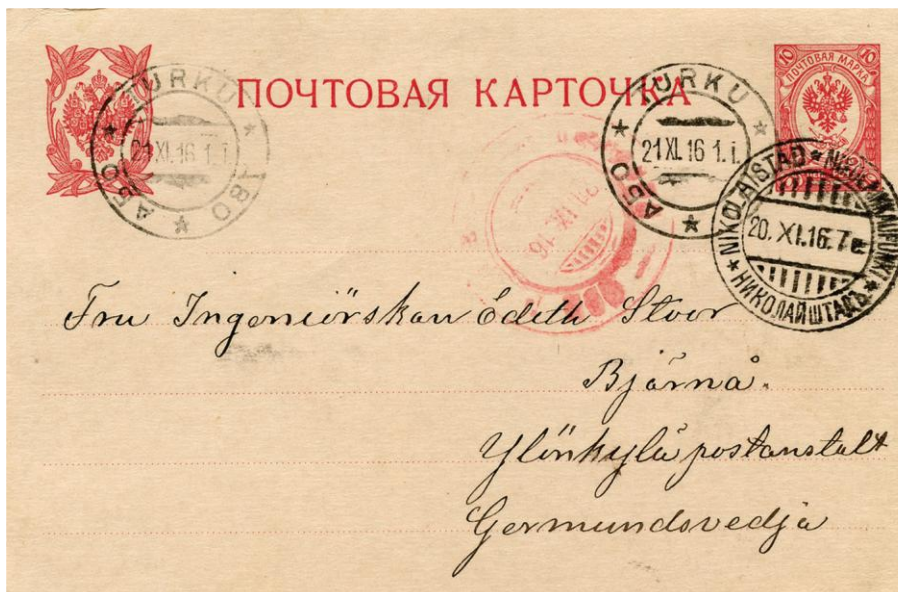 ПОЧТОВАЯ КАРТОЧКА
10 10
ПОЧТОВАЯ МАРКА
TURKU
ÅBO
АБО
21 XI. 16 1. i.
TURKU
АБО
21 XI. 16 1. i.
NIKOLAISTAD
20. XI. 16. 7e
НИКОЛАЙШТАДЪ
Fru Ingeniörskan Edith Stoor
Bjärnå.
Ylönkylä postanstalt
Germundsvedja